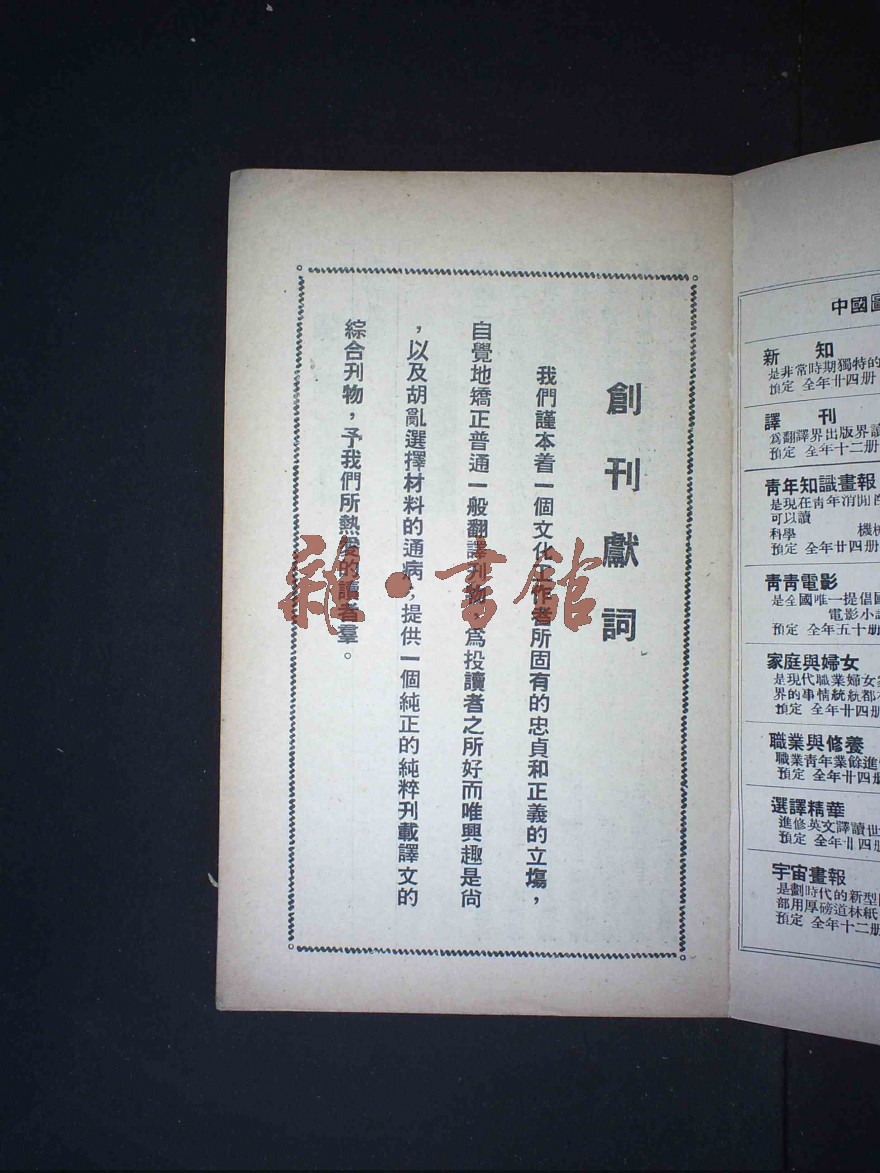 創刊獻詞
我們謹本着一個文化工作者所固有的忠貞和正義的立塲，
自覺地矯正普通一般翻譯刊物，為投讀者之所好而唯興趣是尙
，以及胡亂選擇材料的通病，提供一個純正的純粹刊載譯文的
綜合刊物，予我們所熱愛的讀者羣。
雜·書館
中國圖
新知
是非常時期獨特的
預定 全年廿四册
譯刊
為翻譯界出版界讀
預定 全年十二册
靑年知識畫報
是現在靑年消閒
可以讀
科學 機械
預定 全年廿四册
靑靑電影
是全國唯一提倡國
電影小說
預定 全年五十册
家庭與婦女
是現代職業婦女家
界的事情統統都
預定 全年廿四册
職業與修養
職業靑年業餘進
預定 全年廿四册
選譯精華
進修英文譯讀世
預定 全年廿四册
宇宙畫報
是劃時代的新型
部用厚磅道林紙
預定 全年十二册